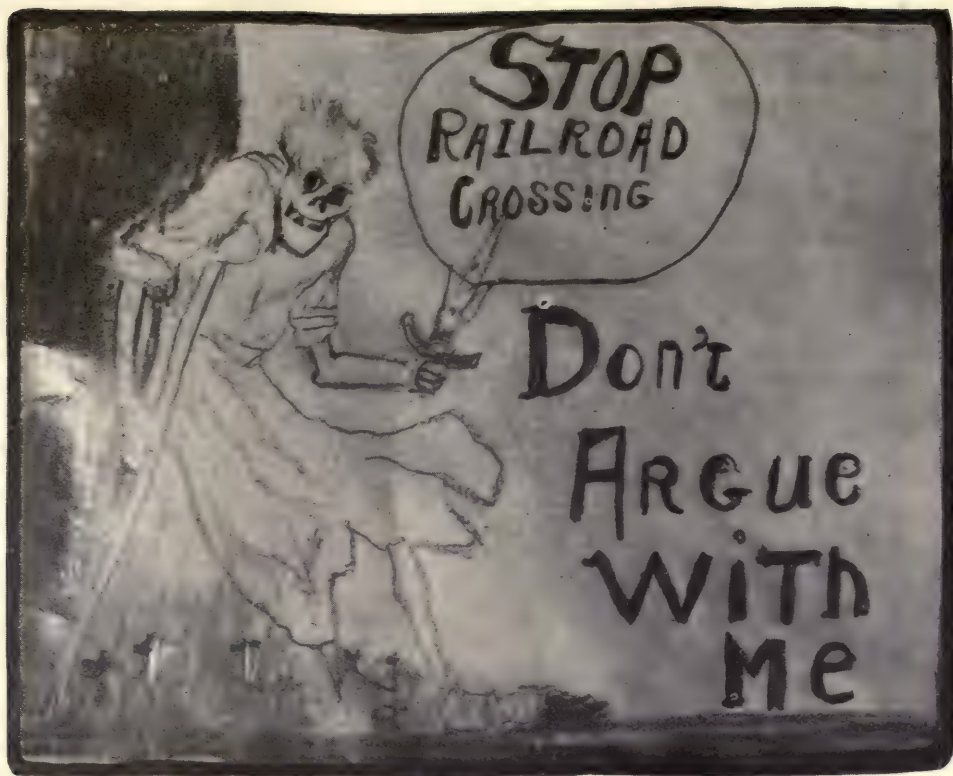 STOP
RAILROAD
CROSSING
Don't
ARGUE
WITH
Me